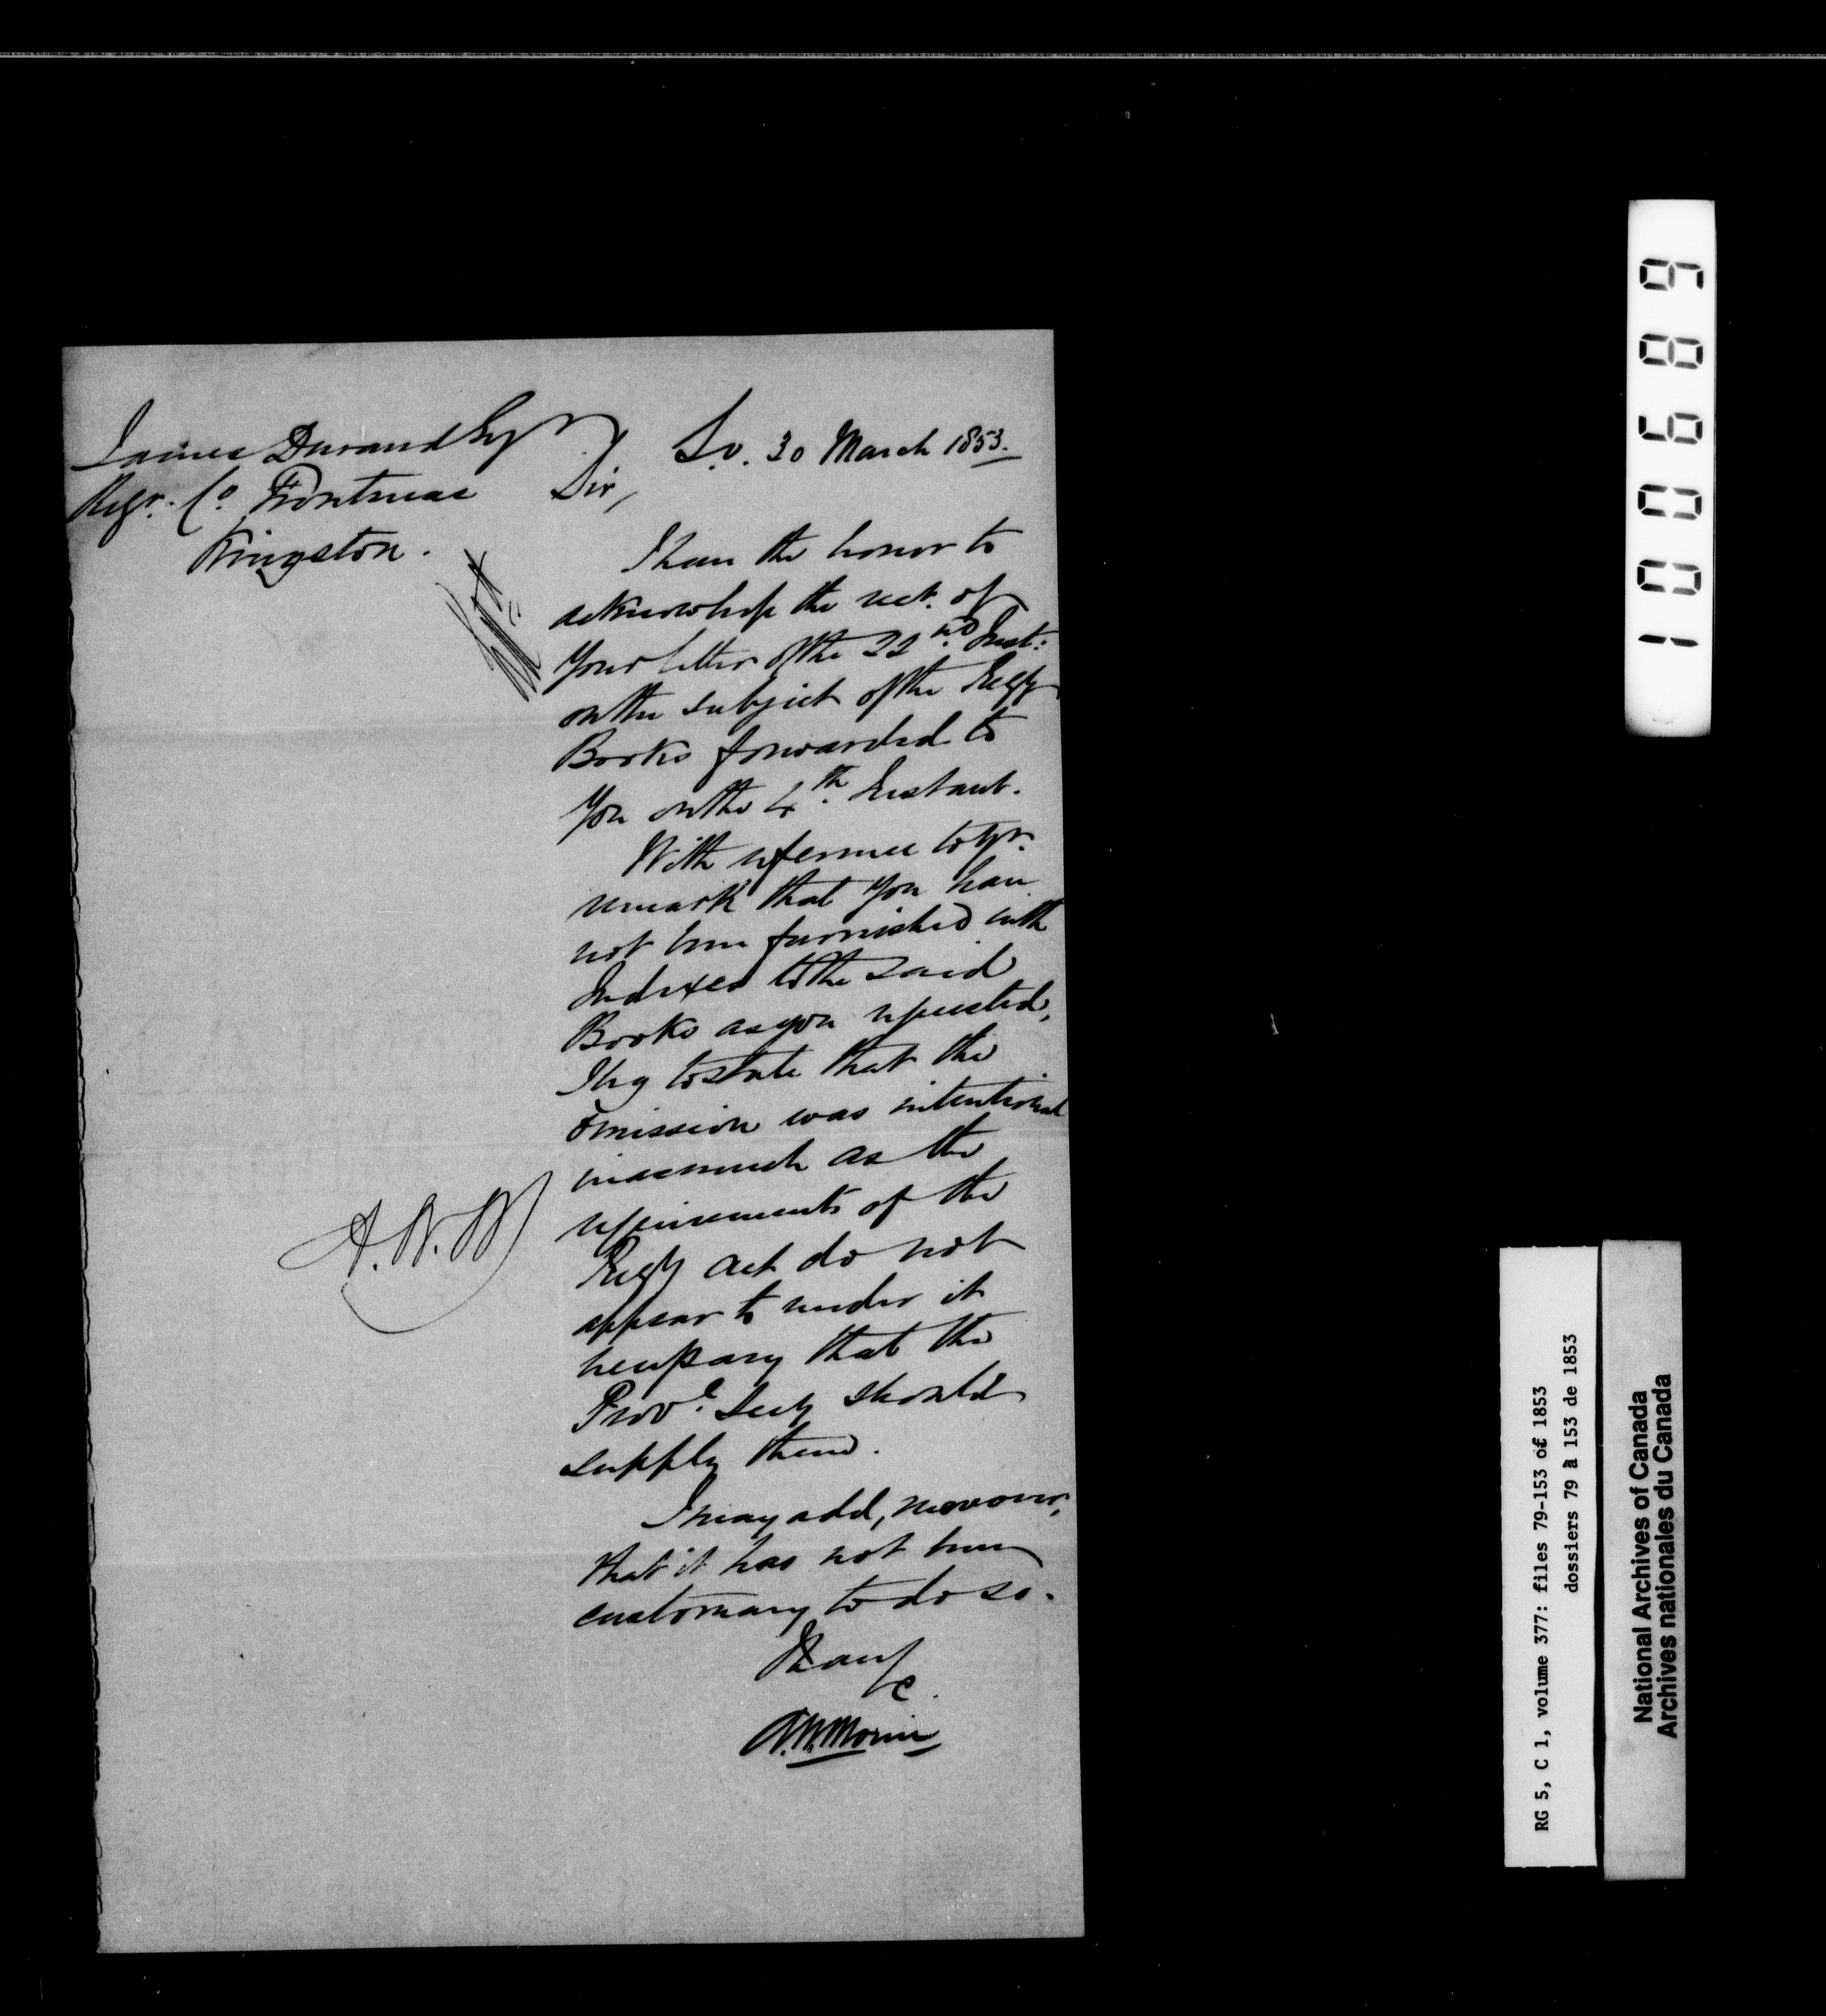 James Durand Esqr
Regr. Co. Frontenac
Kingston.
S.O. 30 March 1853.
Sir,
I have the honor to
acknowledge the rect. of
Your letter of the 22nd. Inst:
on the subject of the Regy
Books forwarded to
You on the 4th. Instant.
With reference to yr.
remark that you have
not been furnished with
Indexes to the said
Books as you requested,
I beg to state that the
omission was intentional
inasmuch as the
requirements of the
Regy Act do not
appear to render it
necessary that the
Provl. Secy should
supply them.
I may add, moreover,
that it has not been
customary to do so.
I have
&c.
A.N. Morin
A.N.M
1 0 0 6 8 9
RG 5, C 1, volume 377: files 79-153 of 1853
dossiers 79 à 153 de 1853
National Archives of Canada
Archives nationales du Canada